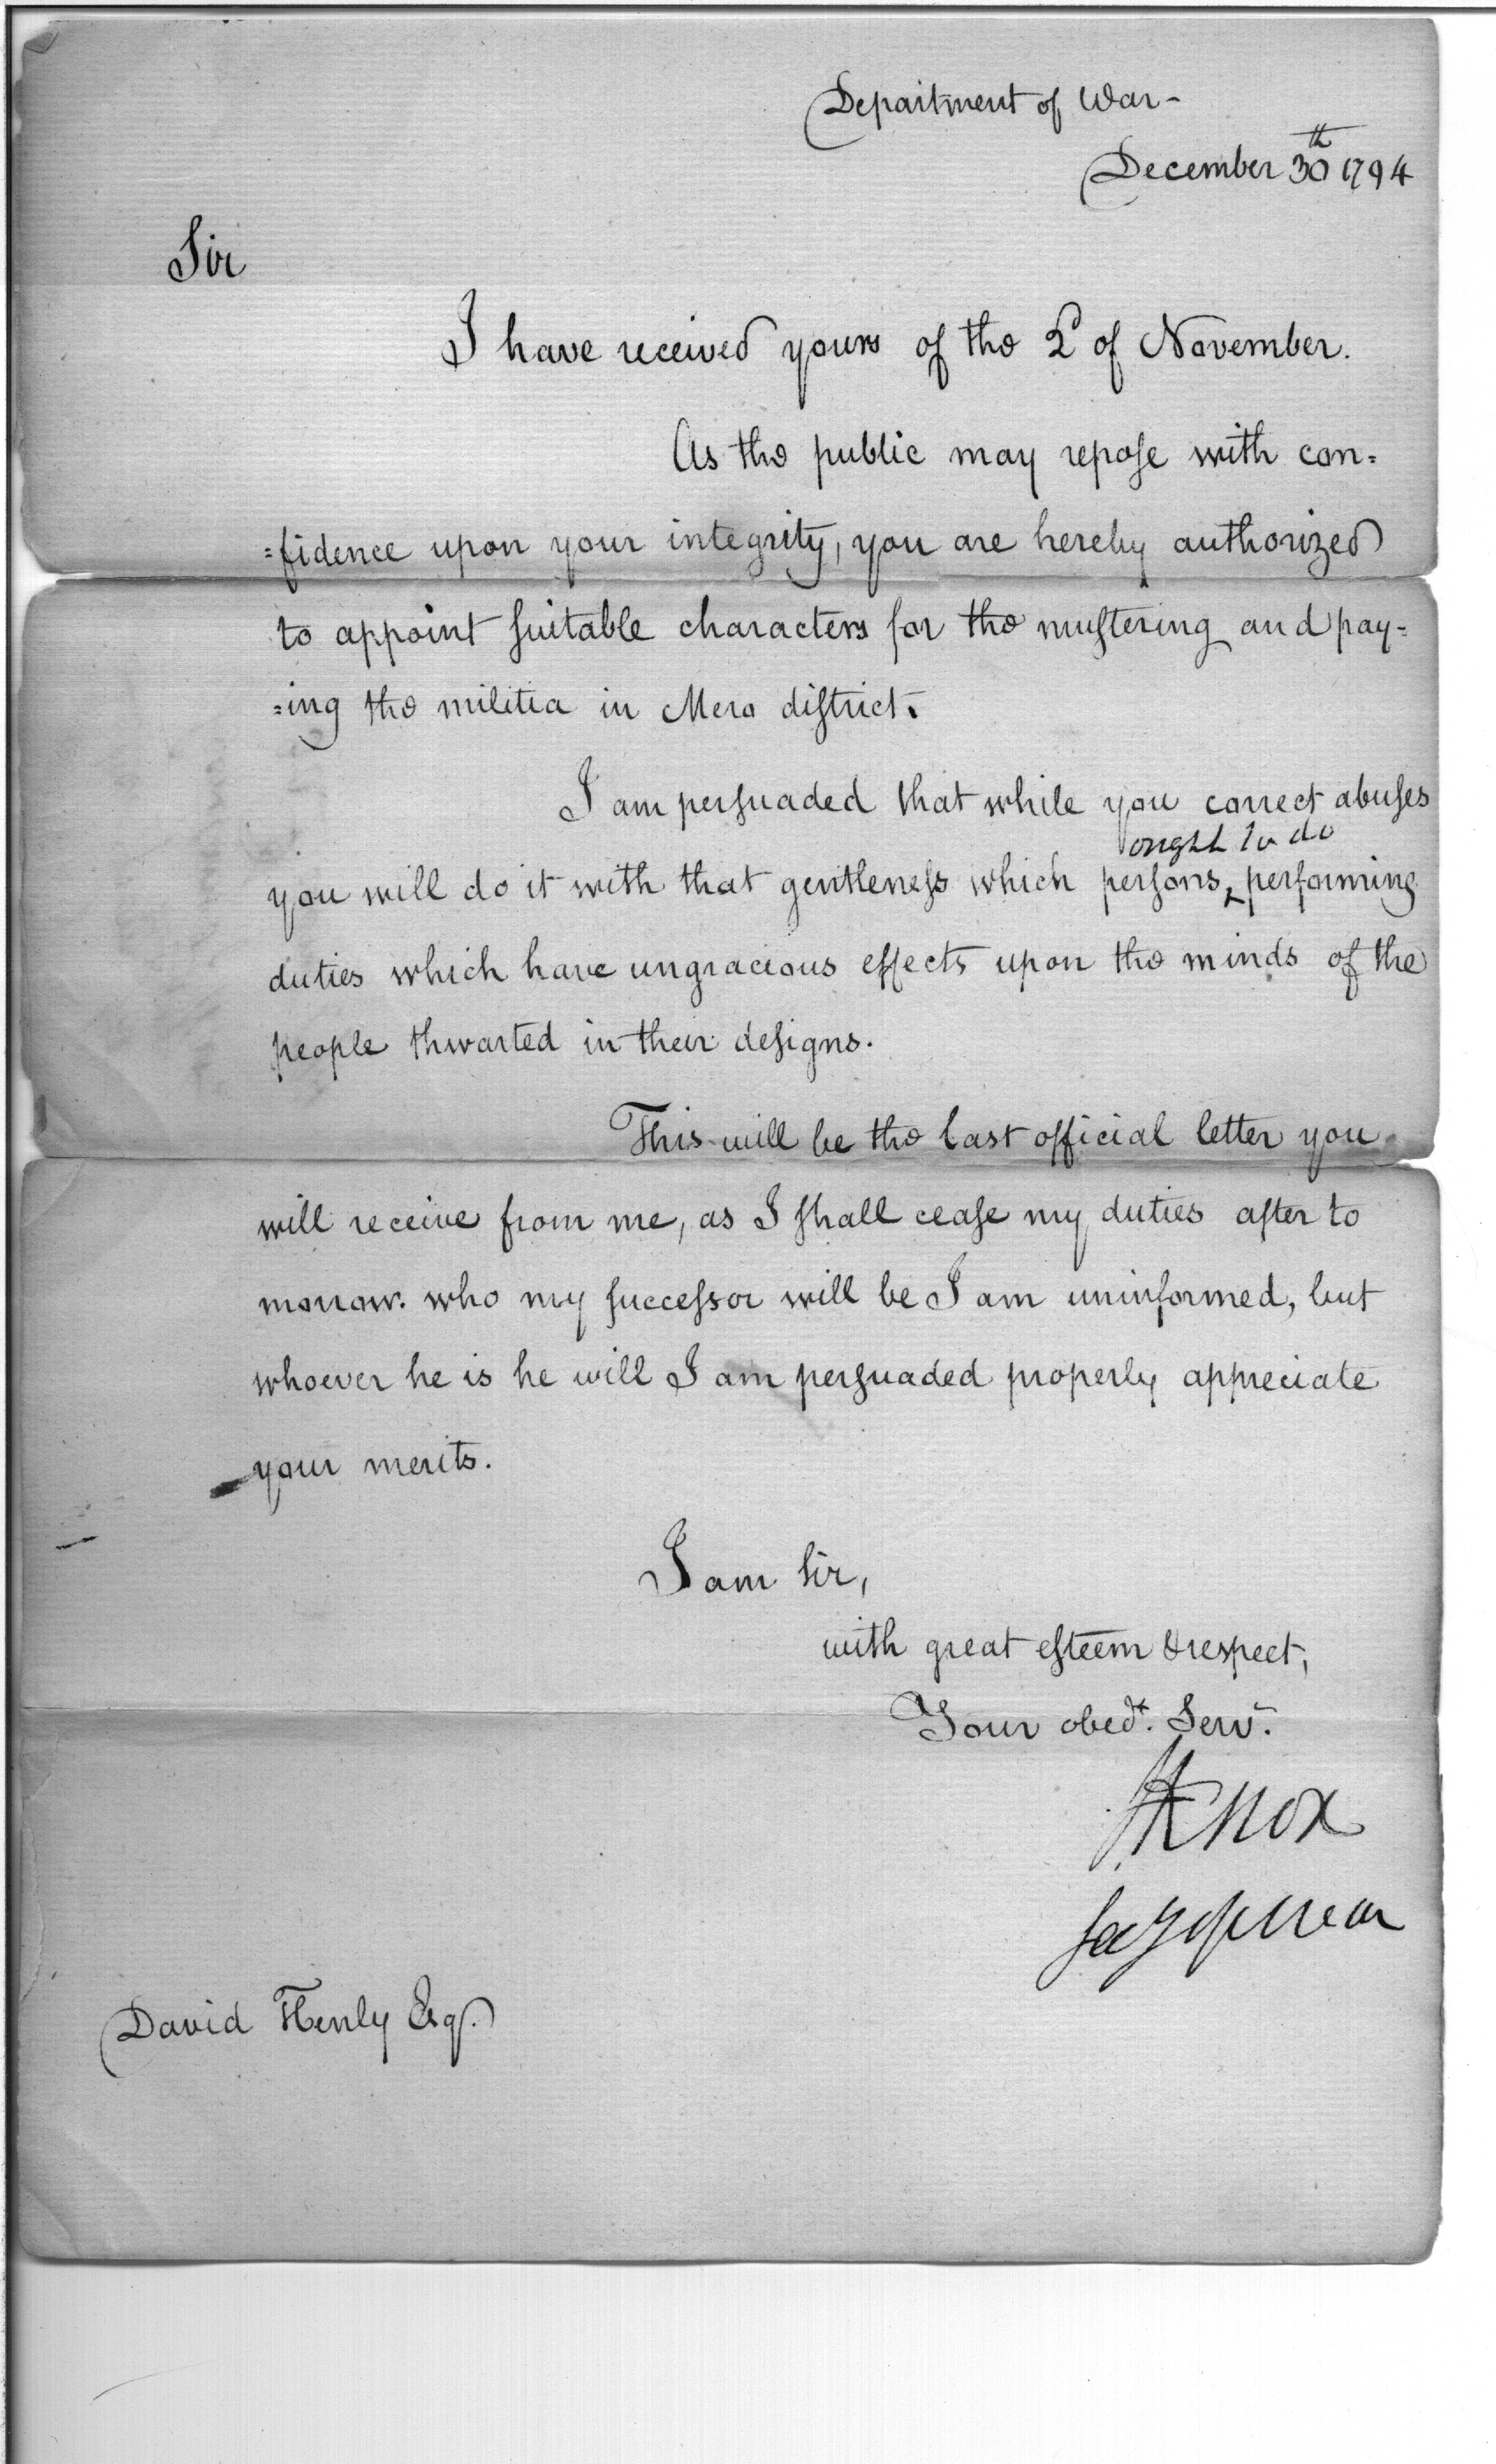 Department of War -
December 30th 1794
Sir
I have received yours of the 2d of November.
As the public may repose with con=
=fidence upon your integrity, you are hereby authorized
to appoint suitable characters for the mustering and pay=
=ing the militia in Mero district.
I am persuaded that while you correct abuses
ought to do
you will do it with that gentleness which persons, performing
duties which have ungracious effects upon the minds of the
people thwarted in their designs.
This will be the last official letter you
will receive from me, as I shall cease my duties after to
morrow. who my successor will be I am uninformed, but
whoever he is he will I am persuaded properly appreciate
your merits.
I am Sir,
with great esteem & respect,
Your obedt. Servt.
HKnox
Secy of War
David Henly Esq.